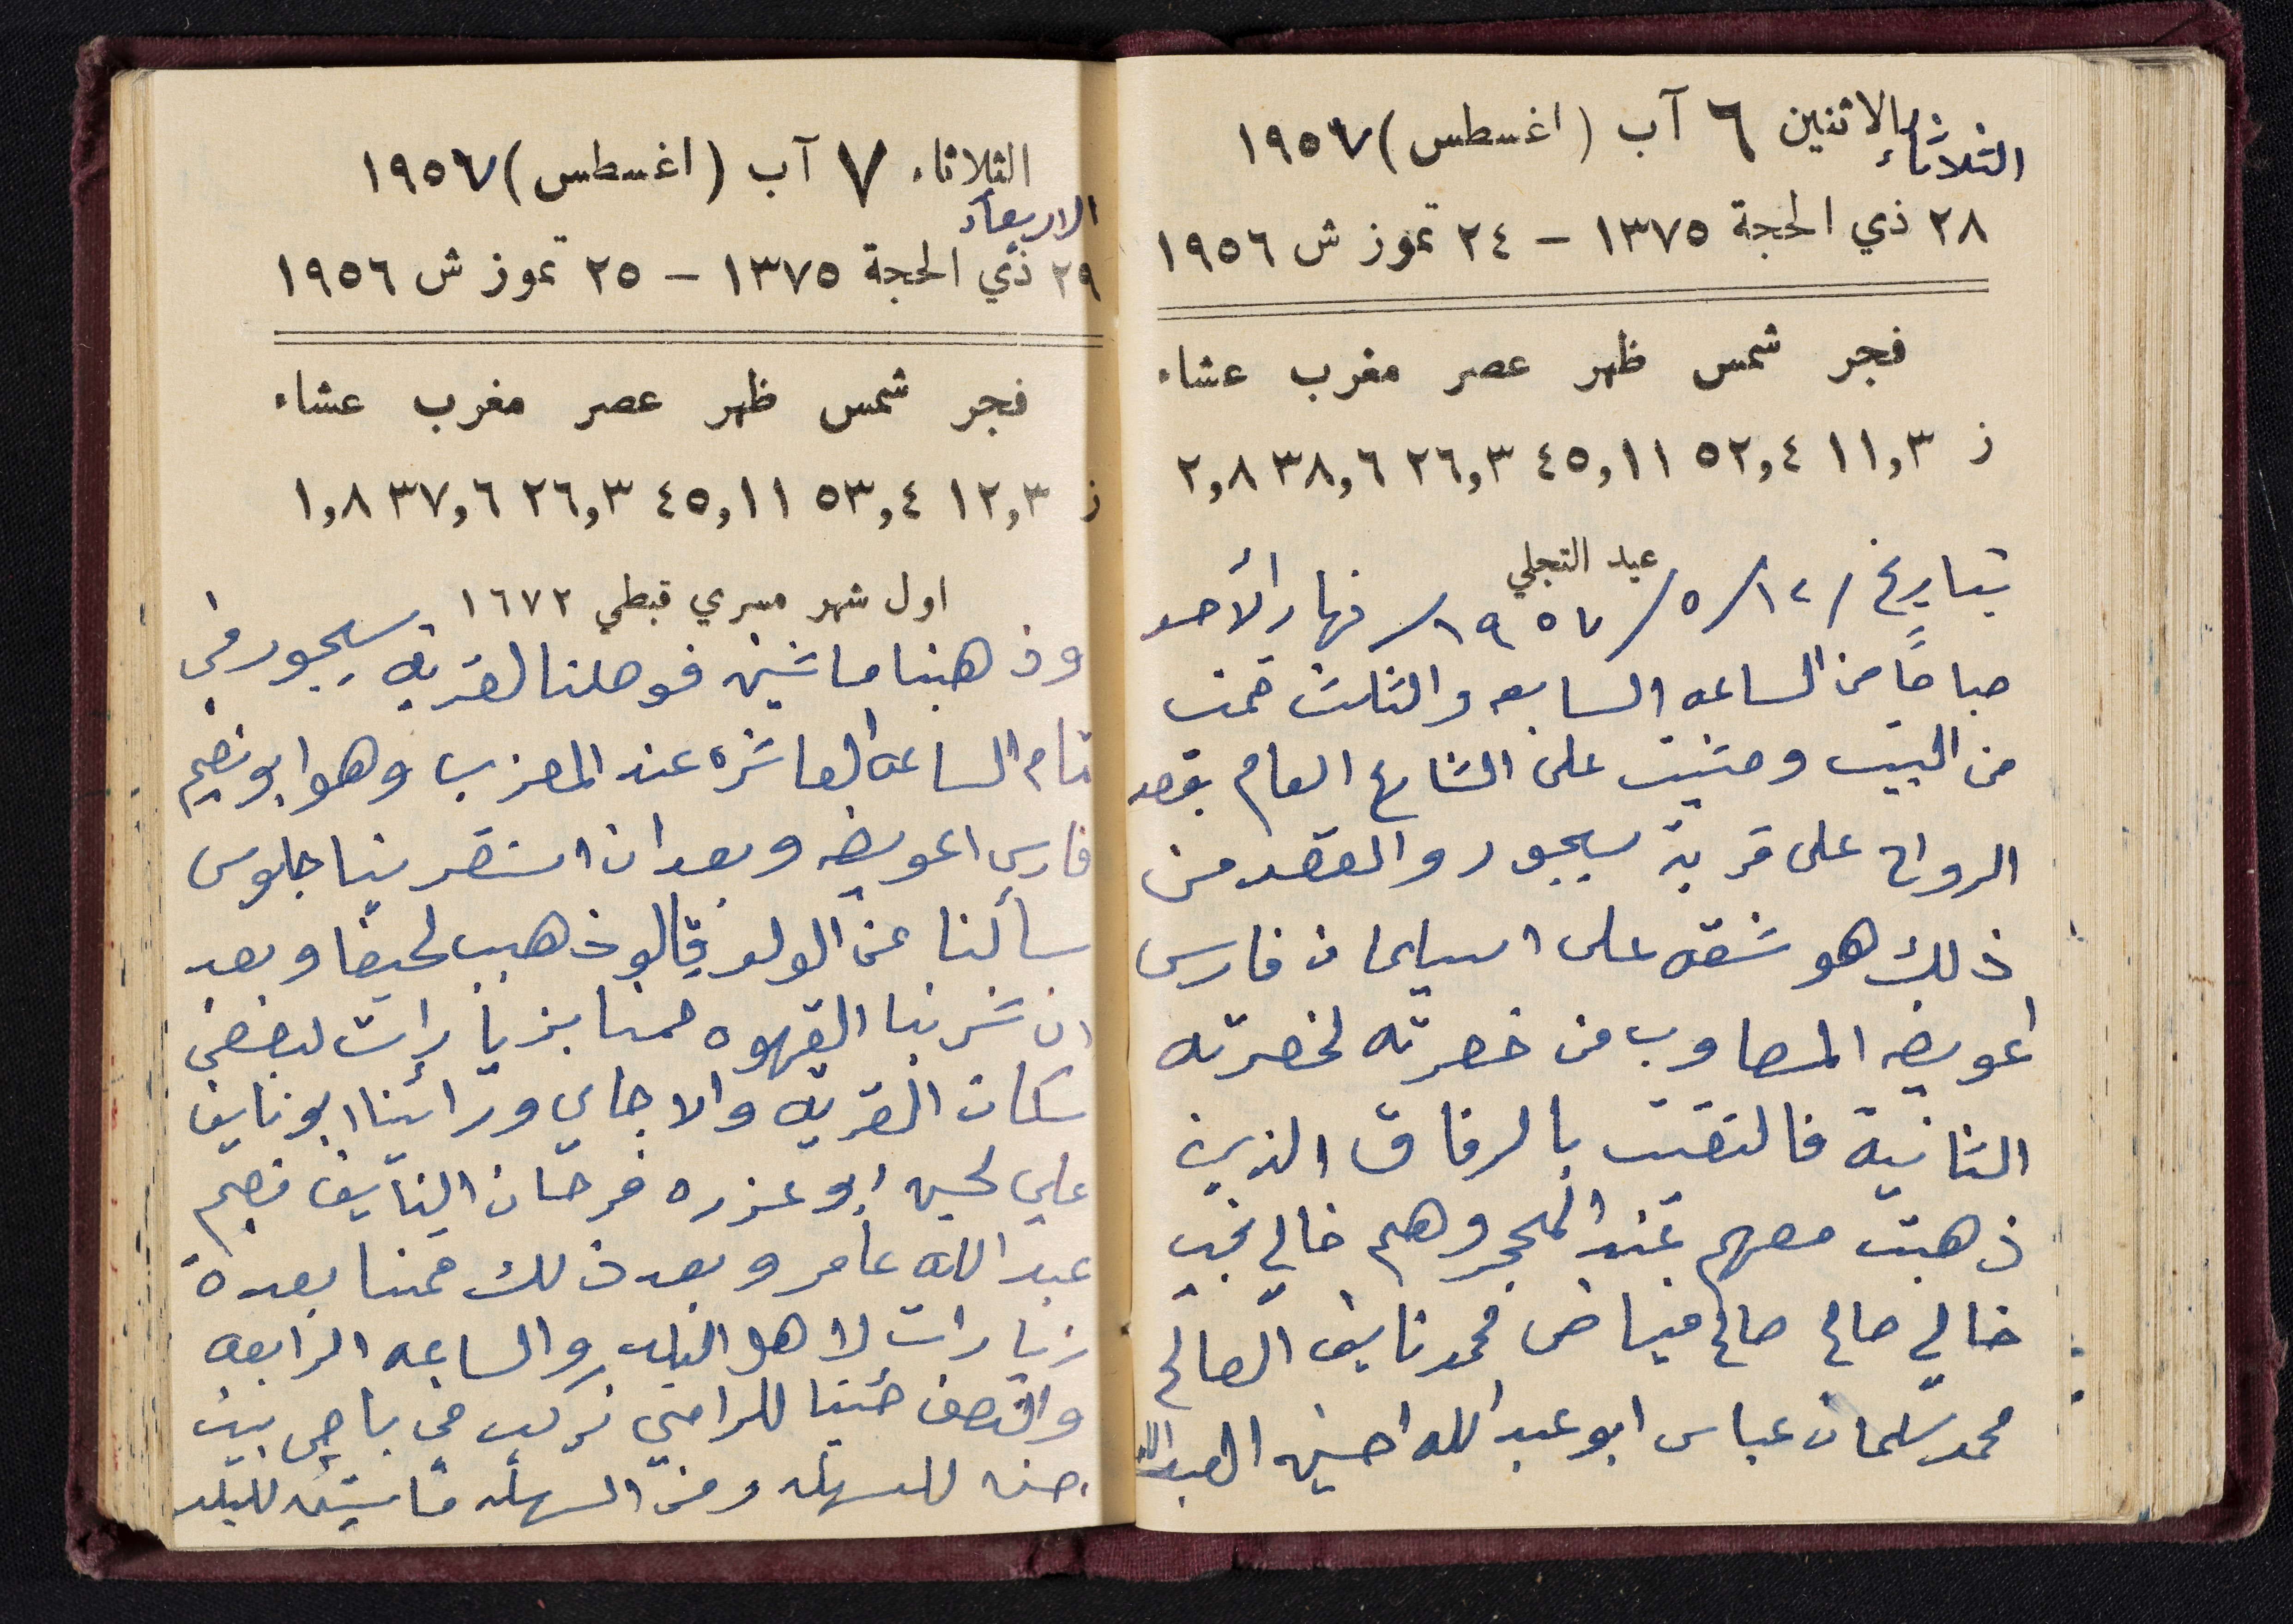 الاثنين ٦ آب (اغسطس) ١٩٥٧
الثلاثاء
٢٨ ذي الحجة ١٣٧٥ - ٢٤ تموز ش ١٩٥٦
فجر شمس ظهر عصر مغرب عشاء
ز ١١,٣ ٥٢,٤ ٤٥,١١ ٢٦,٣ ٣٨,٦ ٢,٨
عيد التجلي
بتاريخ /١٢/٥/١٩٥٧/ نهار الأحد
صباحًا من الساعه السابعه والثلث قمت
من البيت ومشيت على الشارع العام بقصد
الرواح على قرية يجور والقصد من
ذلك هو شقه على اسليمان فارس
اعويضه المصاوب من خصرته لخصرته
الثانية فالتقيت بالرفاق الذين
ذهبت معهم عند المحجر وهم خالي نجيب
خالي صالح صالح فياض محمد نايف الصالح
محمد سلمان عباس ابو عبد الله احسين العبدالله
الثلاثاء ٧ آب (اغسطس) ١٩٥٧
الاربعاء
٢٩ ذي الحجة ١٣٧٥ - ٢٥ تموز ش ١٩٥٦
فجر شمس ظهر عصر مغرب عشاء
ز ١٢,٣ ٥٣,٤ ٤٥,١١ ٢٦,٣ ٣٧,٦ ١,٨
اول شهر مسري قبطي ١٦٧٢
وذهبنا ماشين فوصلنا لقرية يجور في
تمام الساعه العاشره عند المعزب وهو ابو نصيم
فارس اعويضه وبعد ان استقرينا جلوس
سألنا عن الولد قالو ذهب لحيفا وبعد
ان شربنا القهوه قمنا بزيارات لبعض
سكان القريه والاجاي ورائينا ابو نايف
علي لحسين ابو عزره فرحان النايف نصيم
عبد الله عامر وبعد ذلك قمنا بعدة
زيارات لاهل البلد والساعه الرابعه
والنصف جئنا للرامي نركب في باص بيت
جن للسهله ومن السهله ماشين للبلد